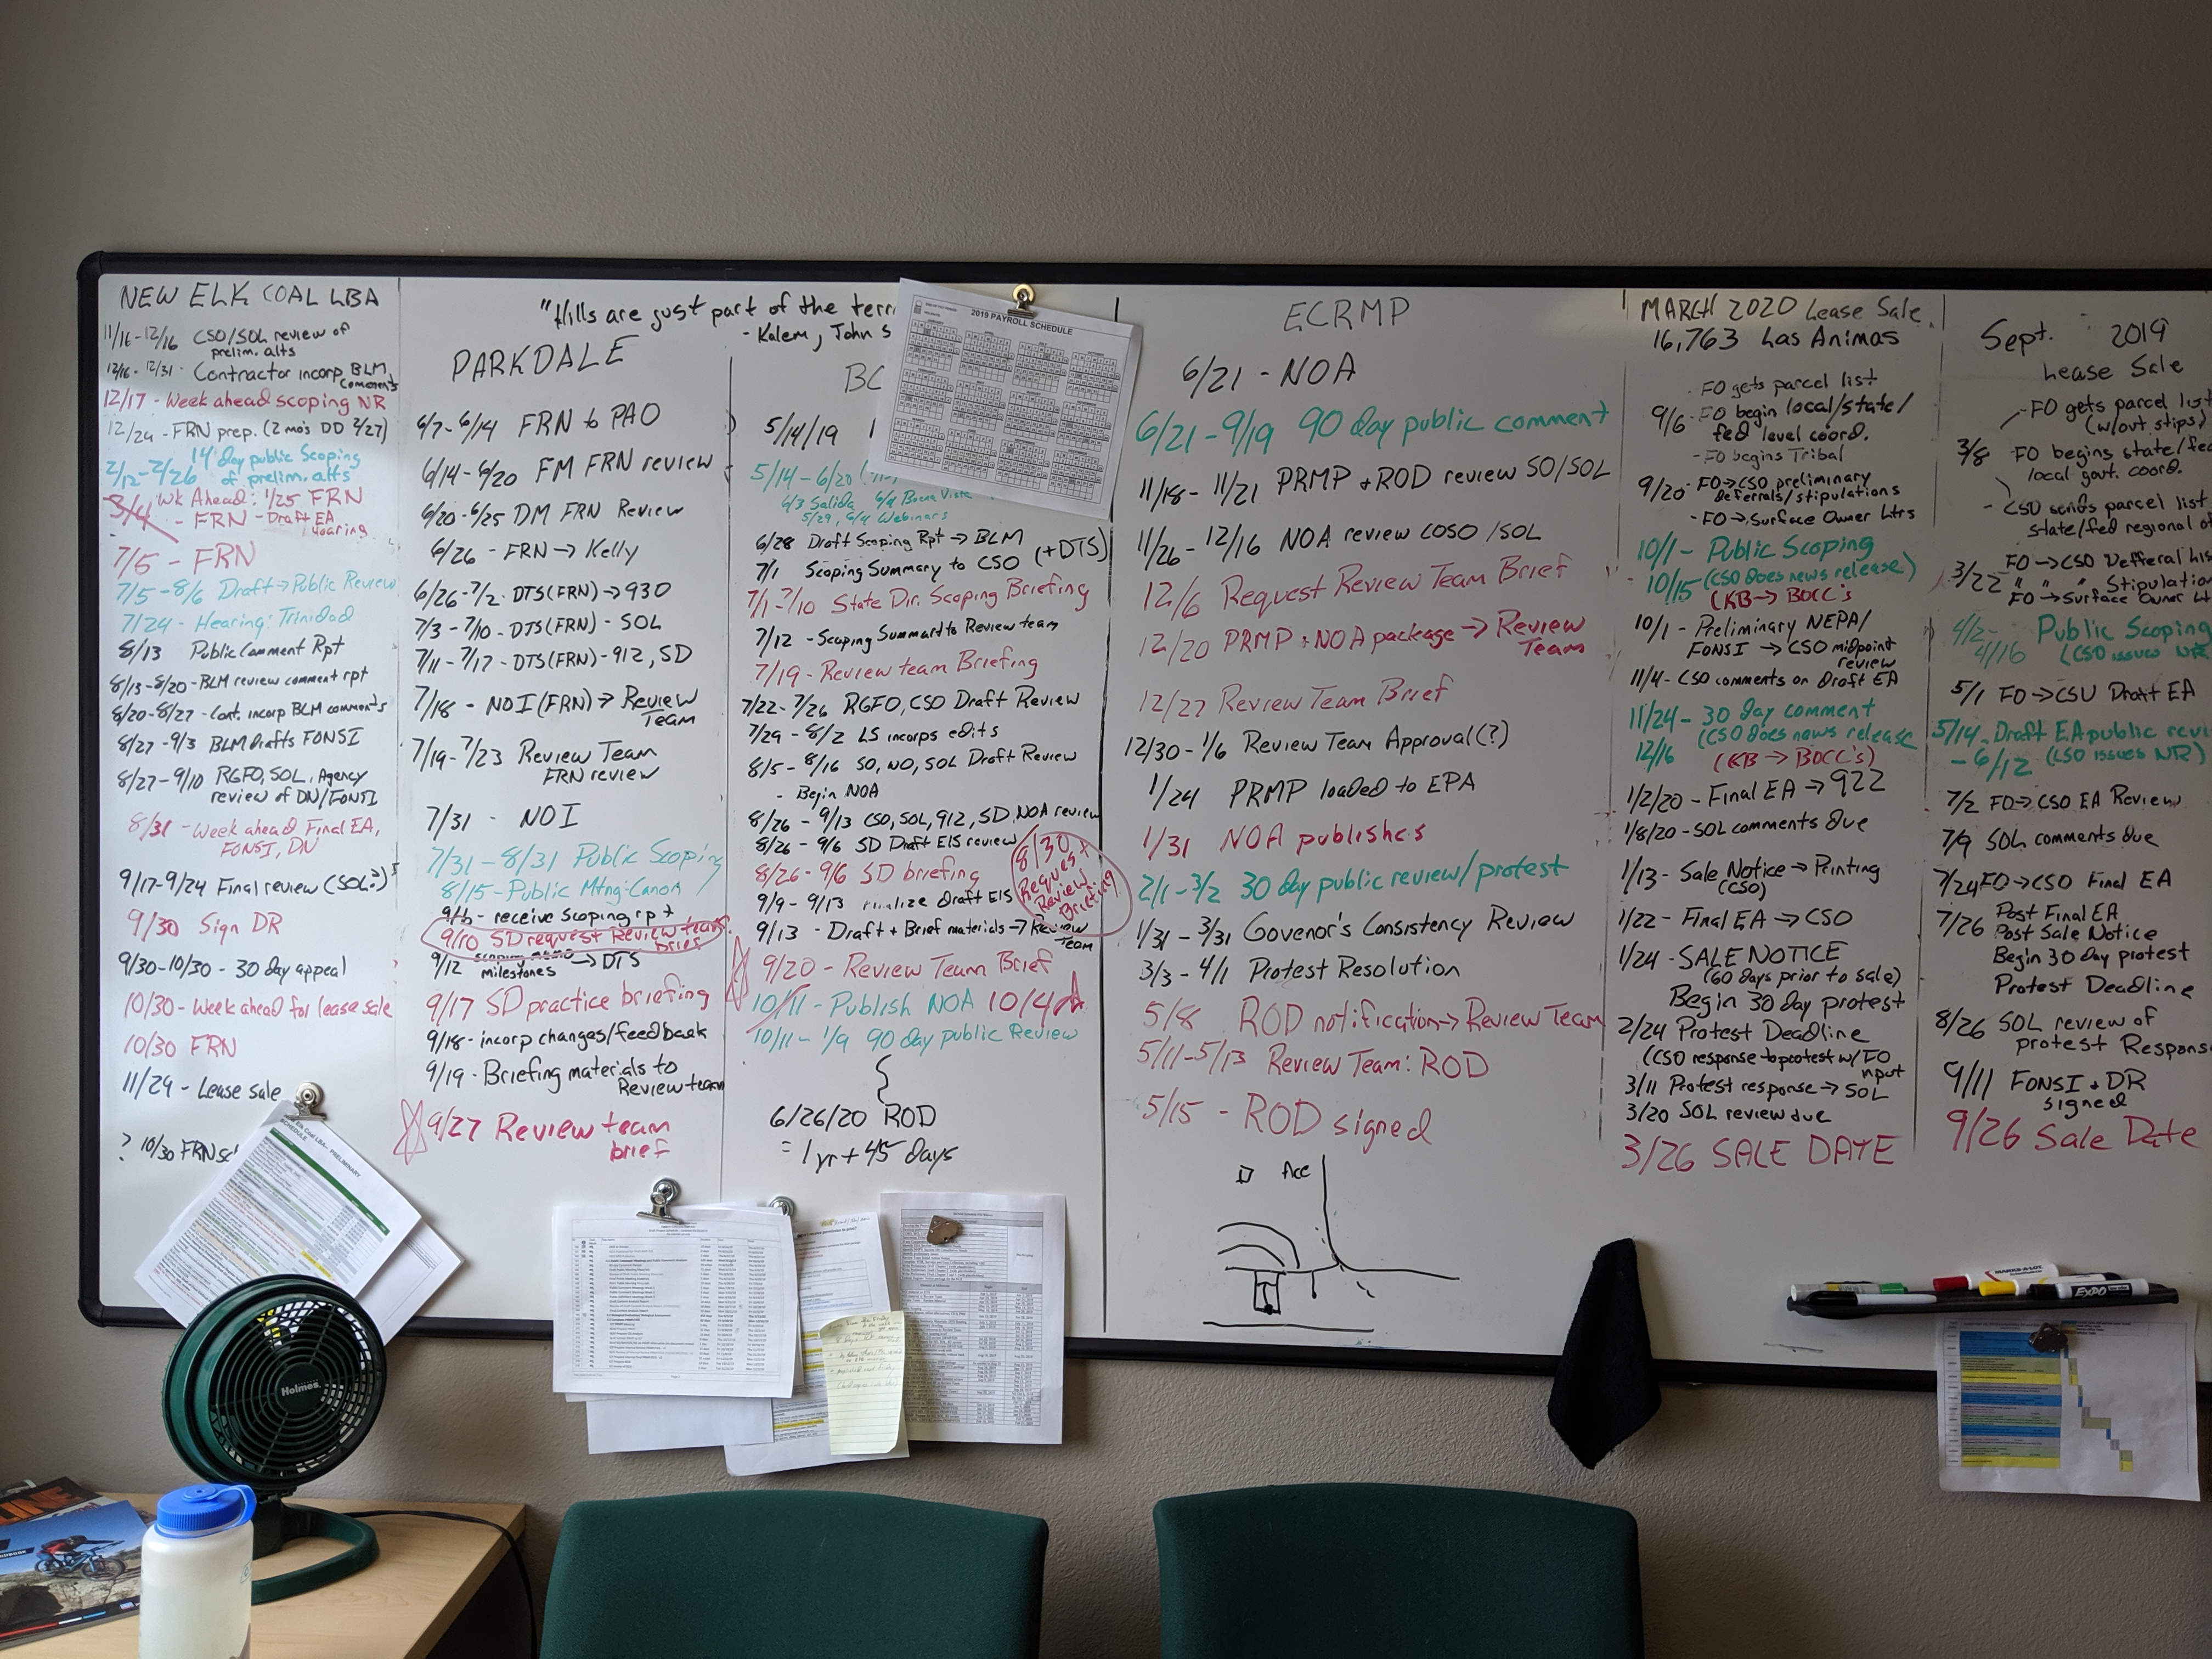 NEW ELK COAL LBA
11/16-12/16 CSO/SOL review of
prelim. alts
12/16-12/31- Contractor incorp BLM
comments
12/17 - Week ahead scoping NR
12/24 - FRN prep. (2 mo's DD 2/27)
2/12-2/26 14 day public Scoping
of prelim. alts
Wk Ahead: 1/25 FRN
3/4 - FRN - Draft EA
Hearing
7/5 - FRN
7/5-8/6 Draft → Public Review
7/24 - Hearing: Trinidad
8/13 Public Comment Rpt
8/13-8/20-BLM review comment rpt
8/20-8/27- Cont. incorp BLM comments
8/27-9/3 BLM drafts FONSI
8/27-9/10 RGFO, SOL, Agency
review of DN/FONSI
8/31 - Week ahead Final EA,
FONSI, DN
9/17-9/24 Final review (SOL?)
9/30 Sign DR
9/30-10/30 - 30 day appeal
10/30 - Week ahead for lease sale
10/30 FRN
11/29 - Lease sale
? 10/30 FRN
"Hills are just part of the
- Kalem, John S
PARKDALE
6/7-6/14 FRN to PAO
6/14-6/20 FM FRN review
6/20-6/25 DM FRN Review
6/26 - FRN → Kelly
6/26-7/2. DTS(FRN) → 930
7/3-7/10-DTS(FRN) - SOL
7/11-7/17-DTS(FRN)-912, SD
7/18 - NOI (FRN) → Review
Team
7/19-7/23 Review Team
FRN review
7/31 - NOI
7/31-8/31 Public Scoping
8/15-Public Mtng-Canon
- receive scoping rpt
9/10 SD request Review team
brief
9/12
milestones → DTS
9/17 SD practice briefing
9/18-incorp changes/feedback
9/19 - Briefing materials to
Review team
9/27 Review team
brief
BC
5/14/19
5/14-6/20
6/3 Salida 6/4 Buena Vista
5/29, 6/4 Webinars
6/28 Draft Scoping Rpt → BLM
7/1 Scoping Summary to CSO (+DTS)
7/1-7/10 State Dir. Scoping Briefing
7/12 - Scoping Summard to Review team
7/19-Review team Briefing
7/22-7/26 RGFO, CSO Draft Review
7/29-8/2 LS incorps edits
8/5-8/16 SO, WO, SOL Draft Review
- Begin NOA
8/26-9/13 CSO, SOL, 912, SD NOA review
8/26-9/6 SD Draft EIS review
8/26-9/6 SD briefing
8/30
Request
Review
Briefing
9/9-9/13 Finalize Draft EIS
9/13 - Draft + Brief materials → Review
Team
9/20 - Review Team Brief
10/11 - Publish NOA 10/4
10/11-1/9 90 day public Review
6/26/20 ROD
= 1 yr + 45 days
2019 PAYROLL SCHEDULE
ECRMP
6/21 - NOA
6/21-9/19 90 day public comment
11/18-11/21 PRMP + ROD review SO/SOL
11/26-12/16 NOA review COSO/SOL
12/6 Request Review Team Brief
12/20 PRMP + NOA package → Review
Team
12/27 Review Team Brief
12/30-1/6 Review Team Approval (?)
1/24 PRMP loaded to EPA
1/31 NOA publishes
2/1-3/2 30 day public review/protest
1/31-3/31 Govenor's Consistency Review
3/3-4/1 Protest Resolution
5/8 ROD notification → Review Team
5/11-5/13 Review Team: ROD
5/15 - ROD signed
Acc
MARCH 2020 Lease Sale
16,763 Las Animas
FO gets parcel list
9/6 - FO begin local/state/
fed level coord.
- FO begins Tribal
9/20 - FO→CSO preliminary
deferrals/stipulations
- FO → Surface Owner Ltrs
10/1 - Public Scoping
10/15 (CSO does news release)
(KB → BOCC's
10/1 - Preliminary NEPA/
FONSI → CSO midpoint
review
11/4 - CSO comments on draft EA
11/24 - 30 day comment
(CSO does news release
12/16 (KB → BOCC's)
1/2/20 - Final EA → 922
1/8/20 - SOL comments due
1/13 - Sale Notice → Printing
(CSO)
1/22 - Final EA → CSO
1/24 - SALE NOTICE
(60 days prior to sale)
Begin 30 day protest
2/24 Protest Deadline
(CSO response to protest w/FO
input
3/11 Protest response → SOL
3/20 SOL review due
3/26 SALE DATE
Sept. 2019
Lease Sale
-FO gets parcel list
(w/out stips)
3/8 -FO begins state/fed
local govt. coord.
- CSO sends parcel list
state/fed regional
3/22 FO → CSO Defferal
" " " Stipulation
FO → Surface Owner
4/2-4/16 Public Scoping
(CSO issues NR
5/1 FO → CSO Draft EA
5/14-Draft EA public
-6/12 (CSO issues NR)
7/2 FO → CSO EA Review
7/9 SOL comments due
7/24 FO → CSO Final EA
7/26 Post Final EA
Post Sale Notice
Begin 30 day protest
Protest Deadline
8/26 SOL review of
protest Respons
9/11 FONSI + DR
signed
9/26 Sale Date
Holmes
MARKS-A-LOT
EXPO